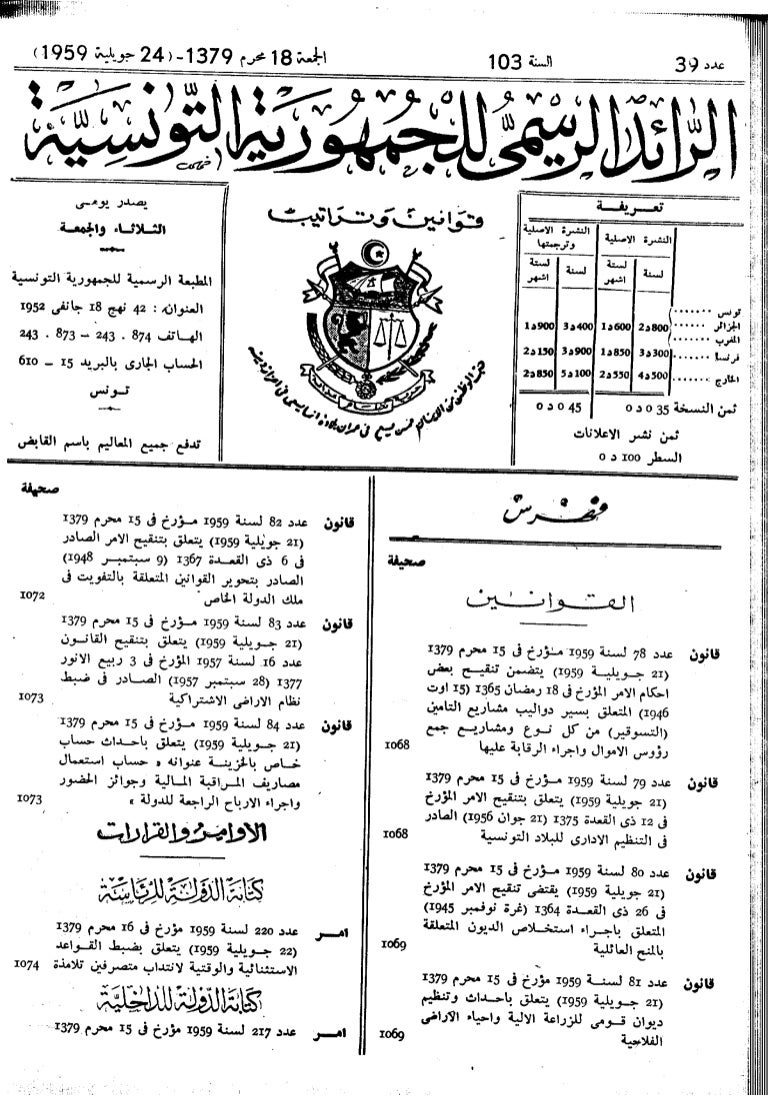 عدد 39
السنة 103
الجمعة 18 محرم 1379 - (24 جويلية 1959)
الرائد الرسمي للجمهورية التونسية
تعريفة
النشرة الاصلية
النشرة الاصلية وترجمتها
لسنة
لستة اشهر
لسنة
لستة اشهر
تونس
الجزائر
المغرب
2د800
1د600
3د400
1د900
فرنسا
3د300
1د850
3د900
2د150
الخارج
4د500
2د550
5د100
2د850
ثمن النسخة 35 0 د 0
45 0 د 0
ثمن نشر الاعلانات
السطر 100 د 0
قوانين وتراتيب
يصدر يومي
الثلاثاء والجمعة
المطبعة الرسمية للجمهورية التونسية
العنوان : 42 نهج 18 جانفي 1952
الهاتف 874 . 243 - 873 . 243
الحساب الجارى بالبريد 15 - 610
تونس
تدفع جميع المعاليم باسم القابض
فهرس
صحيفة
القوانين
قانون عدد 78 لسنة 1959 مؤرخ في 15 محرم 1379
(21 جويلية 1959) يتضمن تنقيح بعض
احكام الامر المؤرخ في 18 رمضان 1365 (15 اوت
1946) المتعلق بسير دواليب مشاريع التامين
(التسوقير) من كل نوع ومشاريع جمع
رؤوس الاموال واجراء الرقابة عليها 1068
قانون عدد 79 لسنة 1959 مؤرخ في 15 محرم 1379
(21 جويلية 1959) يتعلق بتنقيح الامر المؤرخ
في 12 ذى القعدة 1375 (21 جوان 1956) الصادر
في التنظيم الادارى للبلاد التونسية 1068
قانون عدد 80 لسنة 1959 مؤرخ في 15 محرم 1379
(21 جويلية 1959) يقتضى تنقيح الامر المؤرخ
في 26 ذى القعدة 1364 (غرة نوفمبر 1945)
المتعلق باجراء استخلاص الديون المتعلقة
بالمنح العائلية 1069
قانون عدد 81 لسنة 1959 مؤرخ في 15 محرم 1379
(21 جويلية 1959) يتعلق باحداث وتنظيم
ديوان قومى للزراعة الالية واحياء الاراضى
الفلاحية 1069
صحيفة
قانون عدد 82 لسنة 1959 مؤرخ في 15 محرم 1379
(21 جويلية 1959) يتعلق بتنقيح الامر الصادر
في 6 ذى القعدة 1367 (9 سبتمبر 1948)
الصادر بتحوير القوانين المتعلقة بالتفويت في
ملك الدولة الخاص 1072
قانون عدد 83 لسنة 1959 مؤرخ في 15 محرم 1379
(21 جويلية 1959) يتعلق بتنقيح القانون
عدد 16 لسنة 1957 المؤرخ في 3 ربيع الانور
1377 (28 سبتمبر 1957) الصادر في ضبط
نظام الاراضى الاشتراكية 1073
قانون عدد 84 لسنة 1959 مؤرخ في 15 محرم 1379
(21 جويلية 1959) يتعلق باحداث حساب
خاص بالخزينة عنوانه « حساب استعمال
مصاريف المراقبة المالية وجوائز الحضور
واجراء الارباح الراجعة للدولة » 1073
الاوامر والقرارات
كتابة الدولة للرئاسة
امر عدد 220 لسنة 1959 مؤرخ في 16 محرم 1379
(22 جويلية 1959) يتعلق بضبط القواعد
الاستثنائية والوقتية لانتداب متصرفين تلامذة 1074
كتابة الدولة للداخلية
امر عدد 217 لسنة 1959 مؤرخ في 15 محرم 1379